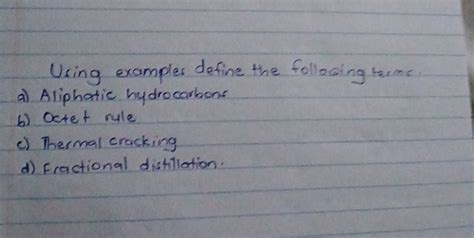 Using examples define the following terms.
a) Aliphatic hydrocarbons
b) Octet rule
c) Thermal cracking
d) Fractional distillation.